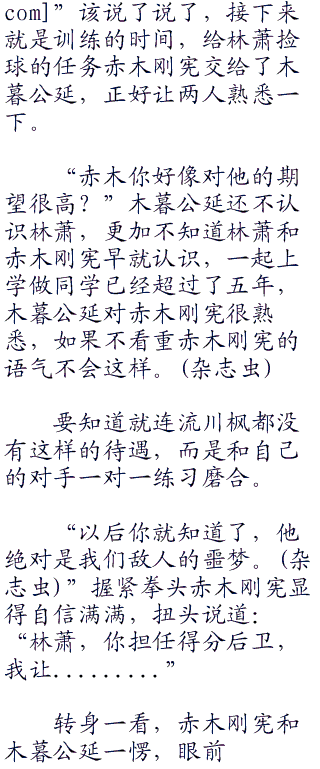 com]”该说了说了，接下来
就是训练的时间，给林萧捡
球的任务赤木刚宪交给了木
暮公延，正好让两人熟悉一
下。
“赤木你好像对他的期
望很高？”木暮公延还不认
识林萧，更加不知道林萧和
赤木刚宪早就认识，一起上
学做同学已经超过了五年，
木暮公延对赤木刚宪很熟
悉，如果不看重赤木刚宪的
语气不会这样。(杂志虫)
要知道就连流川枫都没
有这样的待遇，而是和自己
的对手一对一练习磨合。
“以后你就知道了，他
绝对是我们敌人的噩梦。(杂
志虫)”握紧拳头赤木刚宪显
得自信满满，扭头说道：
“林萧，你担任得分后卫，
我让.........”
转身一看，赤木刚宪和
木暮公延一愣，眼前